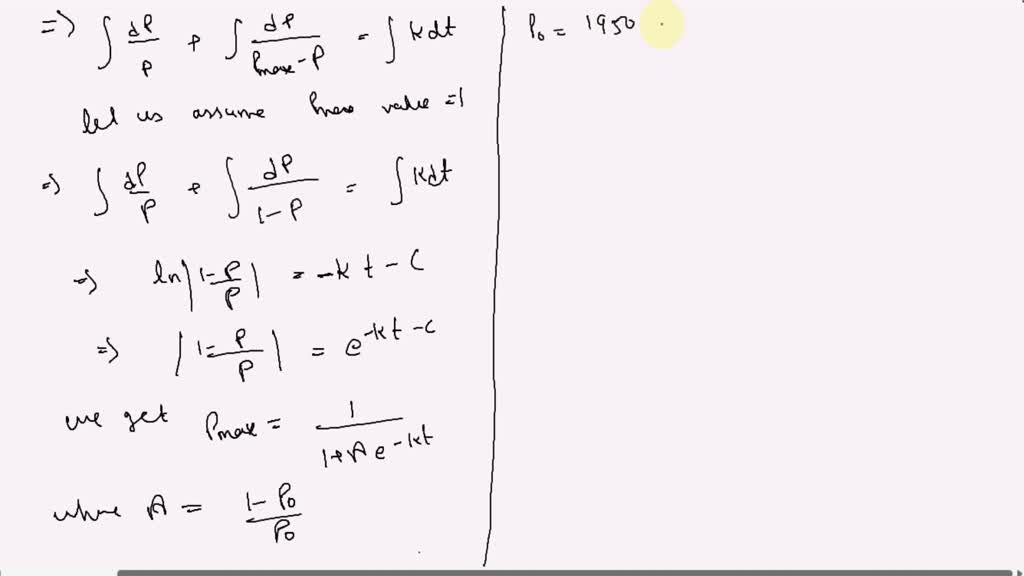 => ∫ dP/P + ∫ dP/(Pmax-P) = ∫ kdt
let us assume Pmax value =1
=> ∫ dP/P + ∫ dP/(1-P) = ∫ kdt
=> ln|(1-P)/P| = -kt-c
=> |(1-P)/P| = e^(-kt-c)
we get Pmax = 1/(1+Ae^(-kt))
where A = (1-P₀)/P₀
P₀ = 1950